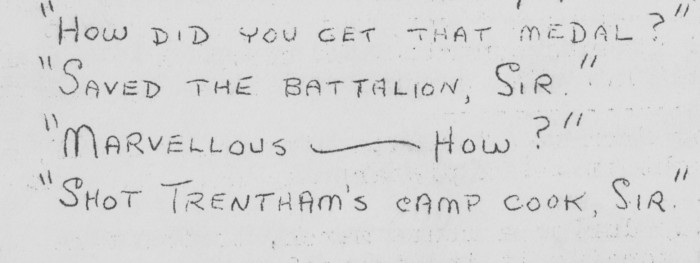 "How did you get that medal?"
"Saved the battalion, Sir."
"Marvellous — How?"
"Shot Trentham's camp cook, Sir."